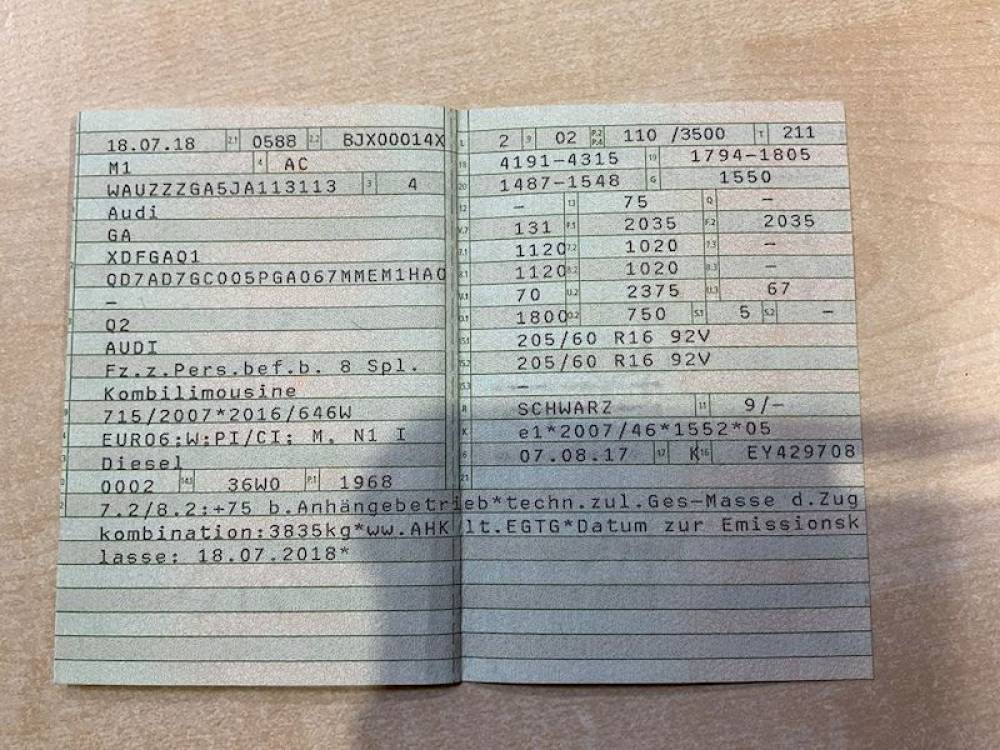 18.07.18 2.1 0588 2.2 BJX00014X
M1 4 AC
WAUZZZGA5JA113113 3 4
Audi
GA
XDFGAQ1
QD7AD7GC005PGA067MMEM1HA0
–
Q2
AUDI
Fz.z.Pers.bef.b. 8 Spl.
Kombilimousine
715/2007*2016/646W
EURO6;W;PI/CI; M, N1 I
Diesel
0002 14.1 36W0 P.1 1968
L 2 9 02 P.2 P.4 110 /3500 T 211
18 4191–4315 19 1794–1805
20 1487–1548 G 1550
12 – 13 75 Q –
V.7 131 F.1 2035 F.2 2035
7.1 1120 7.2 1020 7.3 –
8.1 1120 8.2 1020 8.3 –
U.1 70 U.2 2375 U.3 67
O.1 1800 O.2 750 S.1 5 S.2 –
15.1 205/60 R16 92V
15.2 205/60 R16 92V
15.3 –
R SCHWARZ 11 9/–
K e1*2007/46*1552*05
6 07.08.17 17 K 16 EY429708
21
7.2/8.2:+75 b.Anhängebetrieb*techn.zul.Ges–Masse d.Zug
kombination:3835kg*ww.AHK lt.EGTG*Datum zur Emissionsk
lasse: 18.07.2018*